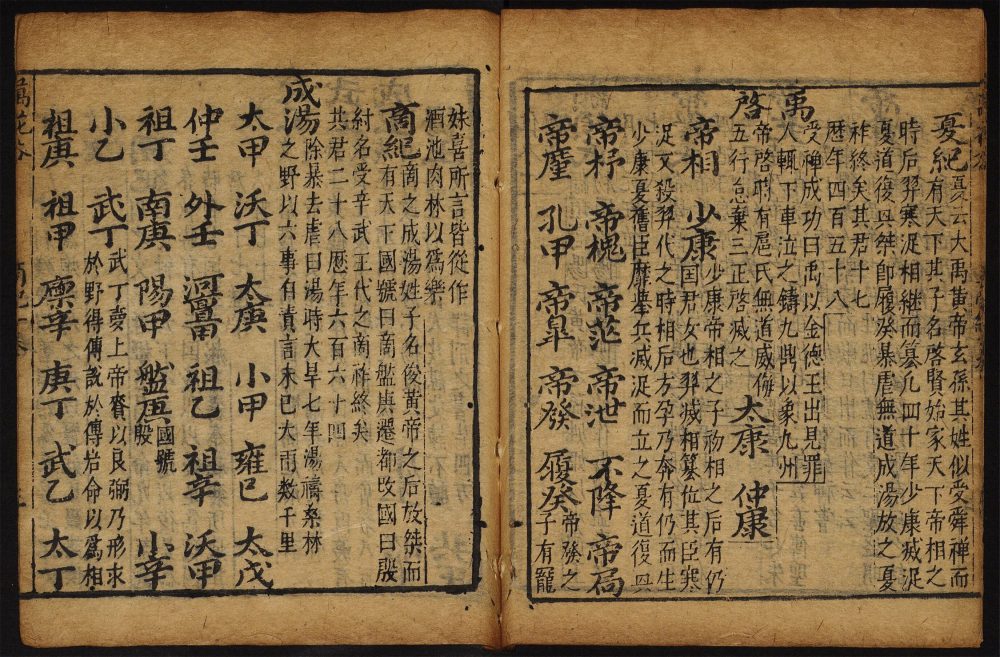 夏紀夏云大禹黃帝玄孫其姓姒受舜禅而
有天下其子名啓賢始家天下帝相之
時后羿寒浞相継而篡几四十年少康减浞
夏道復兴桀即履癸暴虐無道成湯放之夏
祚終矣其君十七
歴年四百五十八
禹受禅成功曰禹以金徳王出見罪
人輒下車泣之鑄九鼎以象九州
啓帝啓時有扈氏無道威侮
五行怠棄三正啓减之 太康 仲康
帝相 少康少康帝相之子初相之后有仍
国君女也羿减相篡位其臣寒
浞又殺羿代之時相后方孕乃奔有仍而生
少康夏舊臣靡举兵减浞而立之夏道復兴
帝杼 帝槐 帝茫 帝泄 不降 帝扃
帝廑 孔甲 帝皐 帝發 履癸帝發之
子有寵
妹喜所言皆從作
酒池肉林以爲樂
商紀商之成湯姓子名俊黃帝之后放桀而
有天下國號曰商至盤庚遷都改國曰殷
紂名受辛武王代之商祚終矣
共君二十八歴年六百六十四
成湯除暴去虐曰湯時大旱七年湯禱桑林
之野以六事自責言未已大雨数千里
太甲 沃丁 太庚 小甲 雍已 太戊
仲壬 外壬 河亶甲 祖乙 祖辛 沃甲
祖丁 南庚 陽甲 盤庚國號殷 小辛
小乙 武丁武丁夣上帝賚以良弼乃形求
於野得傅說於傅岩命以爲相
祖庚 祖甲 廪辛 庚丁 武乙 太丁